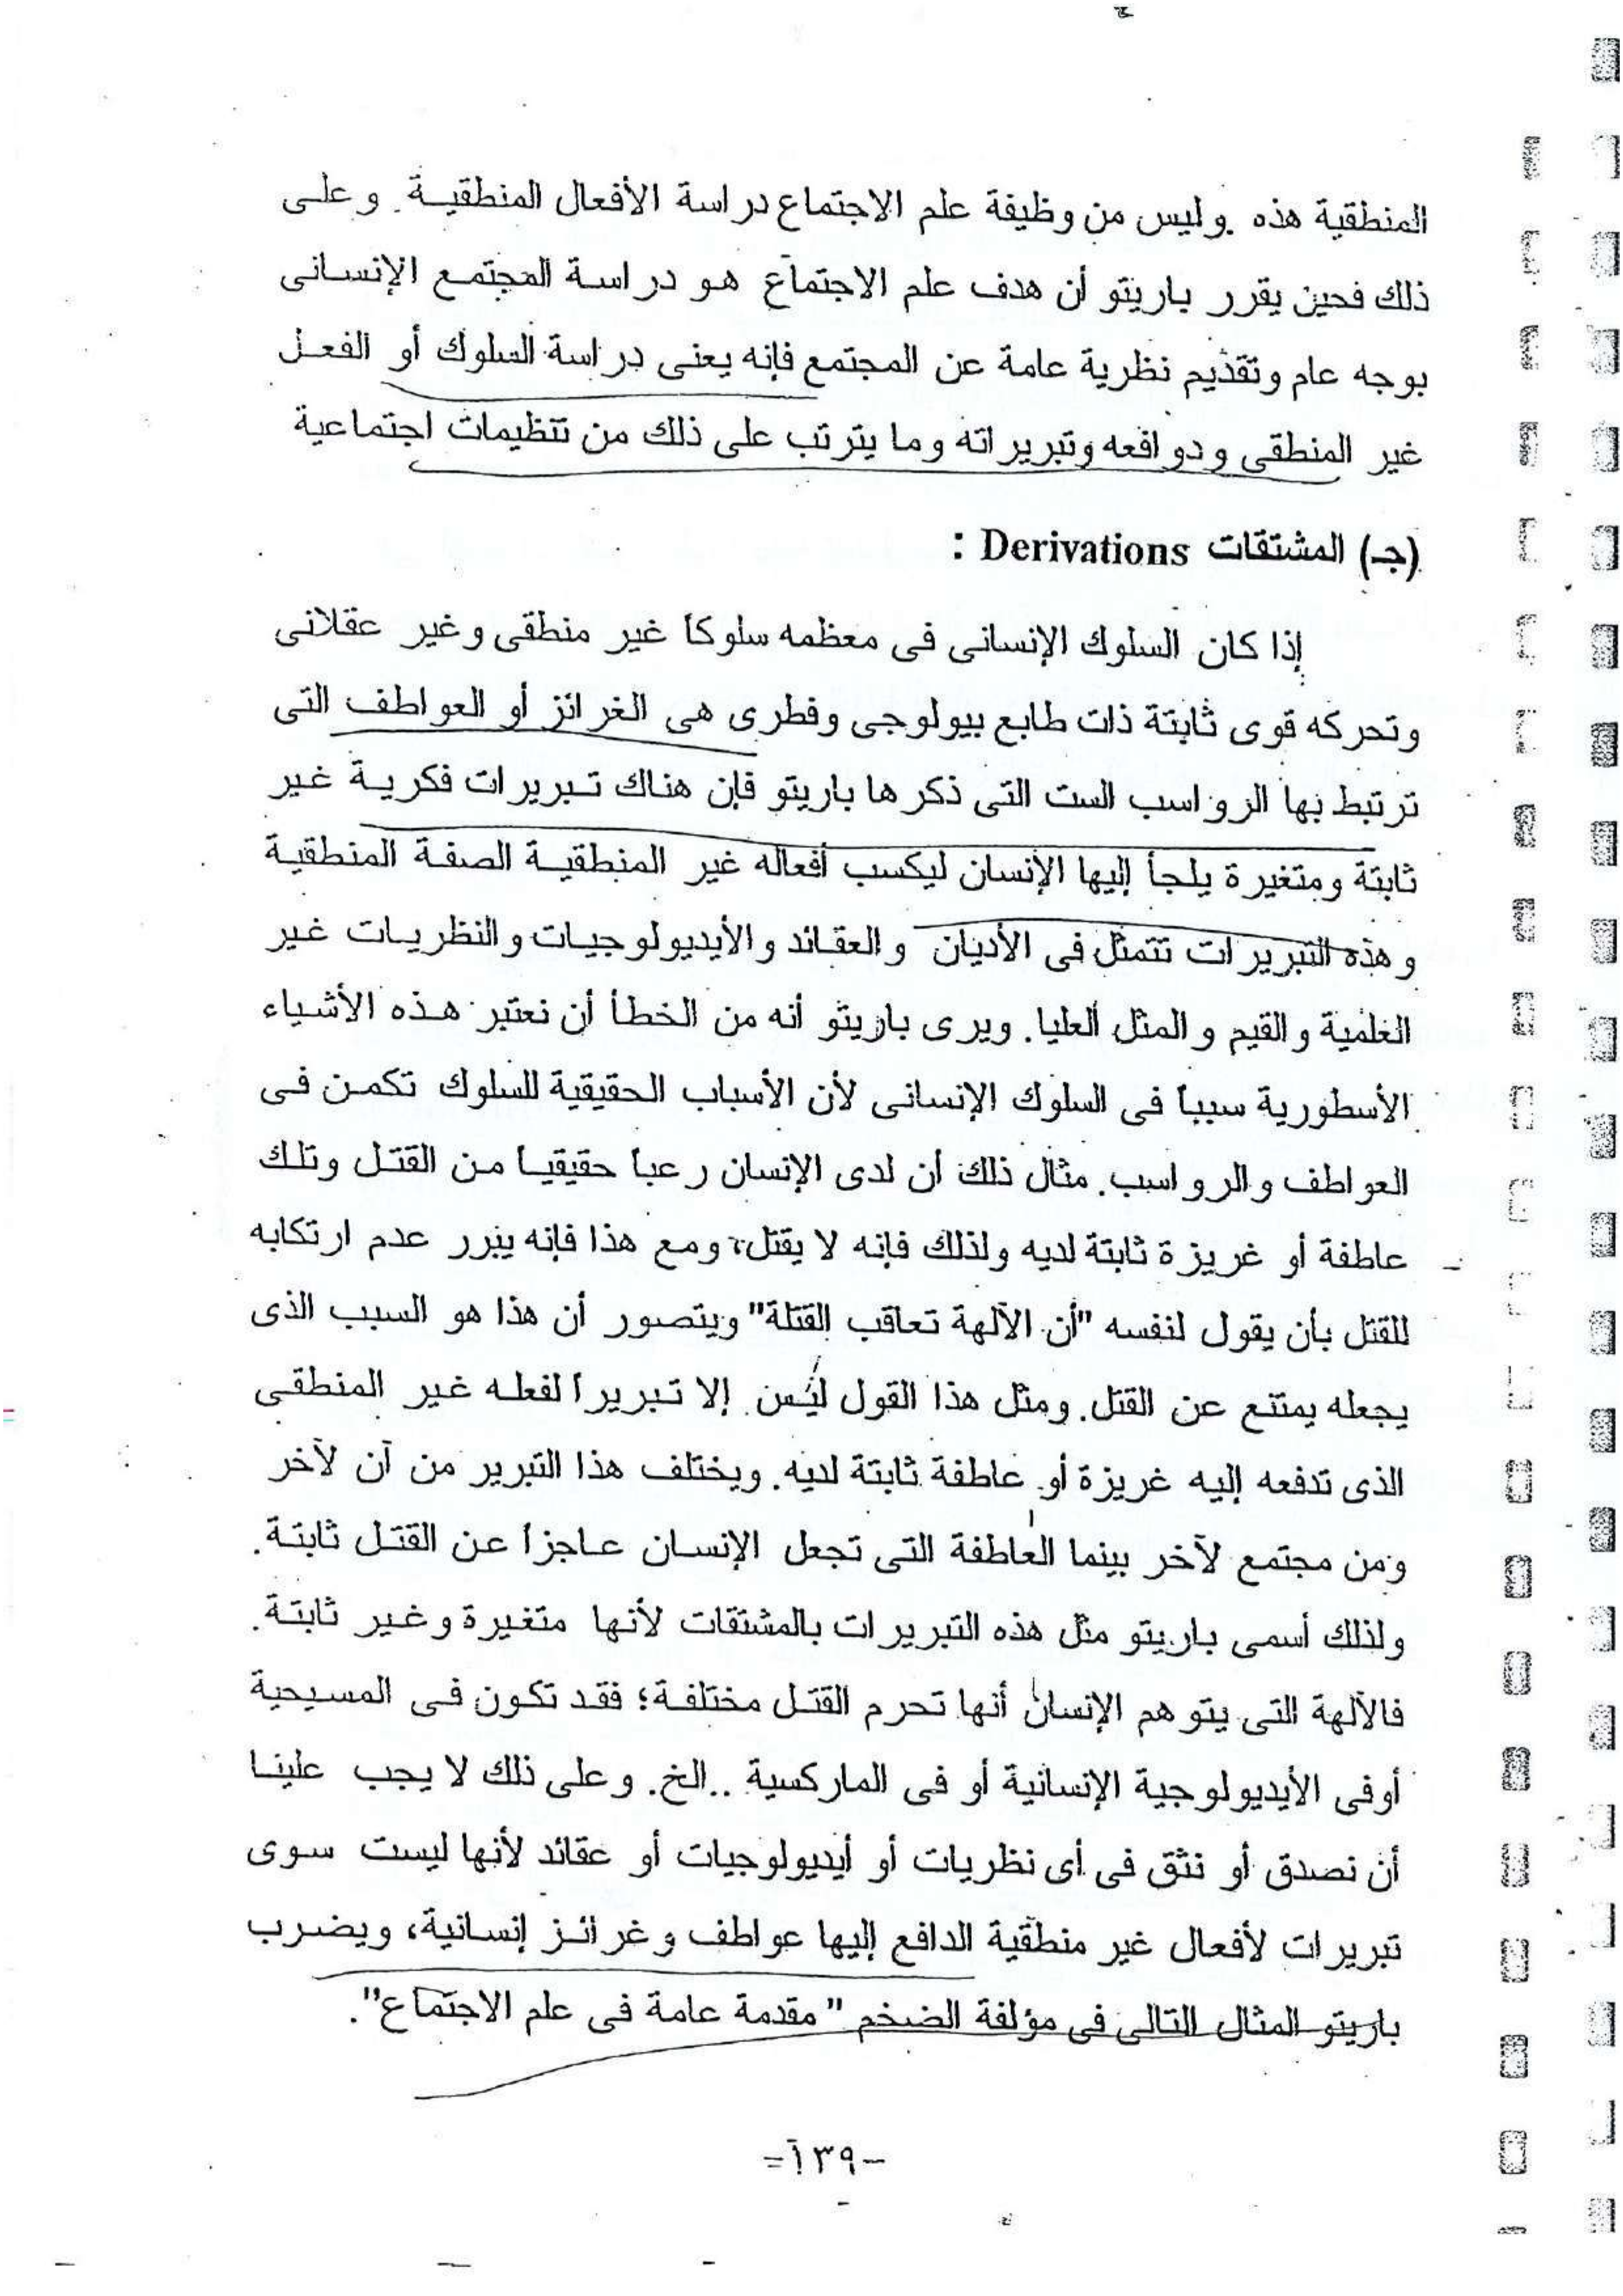 المنطقية هذه. وليس من وظيفة علم الاجتماع دراسة الأفعال المنطقية. وعلى
ذلك فحين يقرر باريتو أن هدف علم الاجتماع هو دراسة المجتمع الإنسانى
بوجه عام وتقديم نظرية عامة عن المجتمع فإنه يعنى دراسة السلوك أو الفعل
غير المنطقى ودوافعه وتبريراته وما يترتب على ذلك من تنظيمات اجتماعية
(جـ) المشتقات Derivations :
إذا كان السلوك الإنسانى فى معظمه سلوكاً غير منطقى وغير عقلانى
وتحركه قوى ثابتة ذات طابع بيولوجى وفطرى هى الغرائز أو العواطف التى
ترتبط بها الرواسب الست التى ذكرها باريتو فإن هناك تبريرات فكرية غير
ثابتة ومتغيرة يلجأ إليها الإنسان ليكسب أفعاله غير المنطقية الصفة المنطقية
وهذه التبريرات تتمثل فى الأديان والعقائد والأيديولوجيات والنظريات غير
العلمية والقيم والمثل العليا. ويرى باريتو أنه من الخطأ أن نعتبر هذه الأشياء
الأسطورية سبباً فى السلوك الإنسانى لأن الأسباب الحقيقية للسلوك تكمن فى
العواطف والرواسب. مثال ذلك أن لدى الإنسان رعباً حقيقياً من القتل وتلك
عاطفة أو غريزة ثابتة لديه ولذلك فإنه لا يقتل، ومع هذا فإنه يبرر عدم ارتكابه
للقتل بأن يقول لنفسه "أن الآلهة تعاقب القتلة" ويتصور أن هذا هو السبب الذى
يجعله يمتنع عن القتل. ومثل هذا القول ليس إلا تبريراً لفعله غير المنطقى
الذى تدفعه إليه غريزة أو عاطفة ثابتة لديه. ويختلف هذا التبرير من آن لآخر
ومن مجتمع لآخر بينما العاطفة التى تجعل الإنسان عاجزاً عن القتل ثابتة.
ولذلك أسمى باريتو مثل هذه التبريرات بالمشتقات لأنها متغيرة وغير ثابتة.
فالآلهة التى يتوهم الإنسان أنها تحرم القتل مختلفة؛ فقد تكون فى المسيحية
أوفى الأيديولوجية الإنسانية أو فى الماركسية ..الخ. وعلى ذلك لا يجب علينا
أن نصدق أو نثق فى أى نظريات أو أيديولوجيات أو عقائد لأنها ليست سوى
تبريرات لأفعال غير منطقية الدافع إليها عواطف وغرائز إنسانية، ويضرب
باريتو المثال التالى فى مؤلفة الضخم "مقدمة عامة فى علم الاجتماع".
-١٣٩-